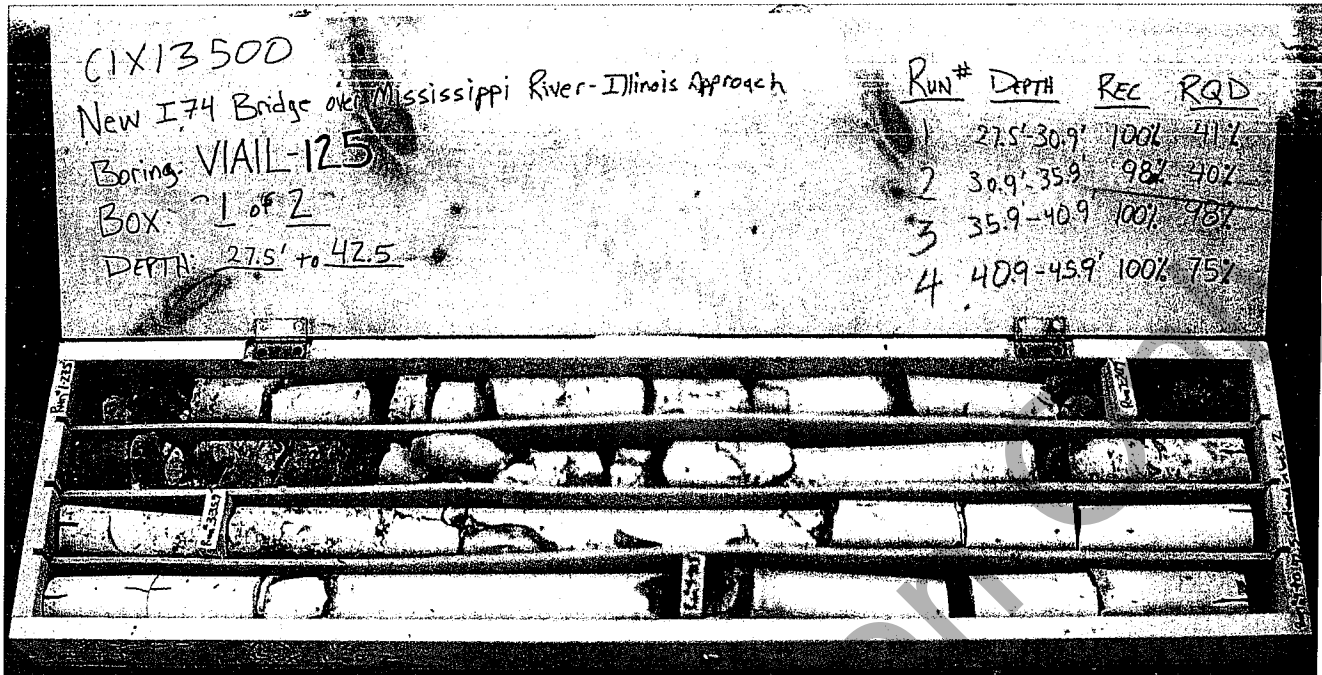 C1X13500
New I.74 Bridge over Mississippi River-Illinois Approach
Boring. VIAIL-125
BOX: 1 of 2
DEPTH: 27.5' to 42.5
RUN# DEPTH REC RQD
1 27.5'-30.9' 100% 41%
2 30.9'-35.9' 98% 40%
3 35.9'-40.9 100% 98%
4 40.9-45.9' 100% 75%